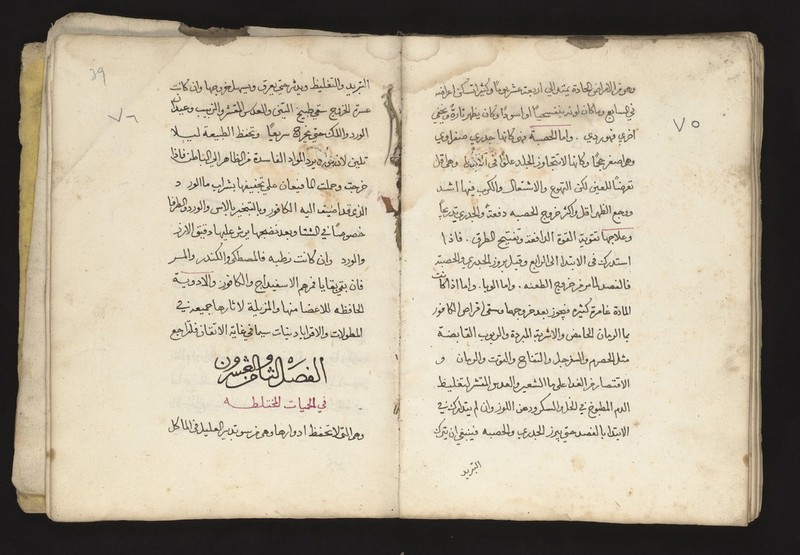 ٧٥
وهو من الامراض الحادة يمتد الى اربعة عشر يوما وكثيرا تسكن اعراضه
في السابع وما كان لونه بنفسجيا او اسودا وكان يظهر تارة ويخفي
اخرى فهو ردي . واما الحصبة فهو كانها جدري صفراوي
وهي اصغر حجما وكانها لا تتجاوز الجلد علوا في الابتداء وهي اقل
تعرضا للعين لكن التهوع والاشتعال والكرب فيها اشد
ووجع الظهر اقل واكثر خروج الحصبه دفعة والجدري تدريجا
وعلاجها تقوية القوة الدافعة وتفتيح الطرق . فاذا
استدرك في الابتدا الى الرابع وقبل بروز الجدري والحصبه
فالفصد لما مر في خروج الطعنه . واما الوبا . واما اذا كانت
المادة غامرة كثيره فيجوز بعد خروجها وسقي اقراص الكافور
بما الرمان الحامض والاشربة المبردة والربوب القابضة
مثل الحصرم والسفرجل والتفاح والتوت والرمان و
الاقتصار في الغذا على ما الشعير والعدس المقشر لتغليظ
الدم المطبوخ في الخل والسكر ودهن اللوز وان لم يتدارك في
الابتدا بالفصد حتى يبرز الجدري والحصبه فينبغي ان يترك
التبريد
٣٩
٧٦
التبريد والتغليظ ويدثر حتى يعرق ويسهل خروجها وان كانت
عسرة الخروج سقي طبيخ التين والعدس المقشر والزبيب وعيدان
الورد واللك حتى يخرج سريعا وتحفظ الطبيعة ليلا
تلين لانه يرد المواد الفاسدة من الظاهر الى الباطن فاذا
خرجت وحملت الما فيعان على تجفيفها بشراب ما الورد
الذي قد اضيف اليه الكافور وبالتبخير بالاس والورد والطرفا
خصوصا في الشتا وبعد نضجها يرش عليها دقيق الارز
والورد وان كانت رطبه فالمصطكى والكندر والمر
فان بقي بقايا فمرهم الاسفيداج والكافور والادوية
الحافظه للاعضا منها والمزيلة لاثارها جميعه في
المطولات والاقراباذينات سيما في غاية الاتقان فلتراجع
الفصل الثامن والعشرون
في الحميات المختلطه
وهي التي لا تحفظ ادوارها وهي من سو تدبير العليل في الماكل